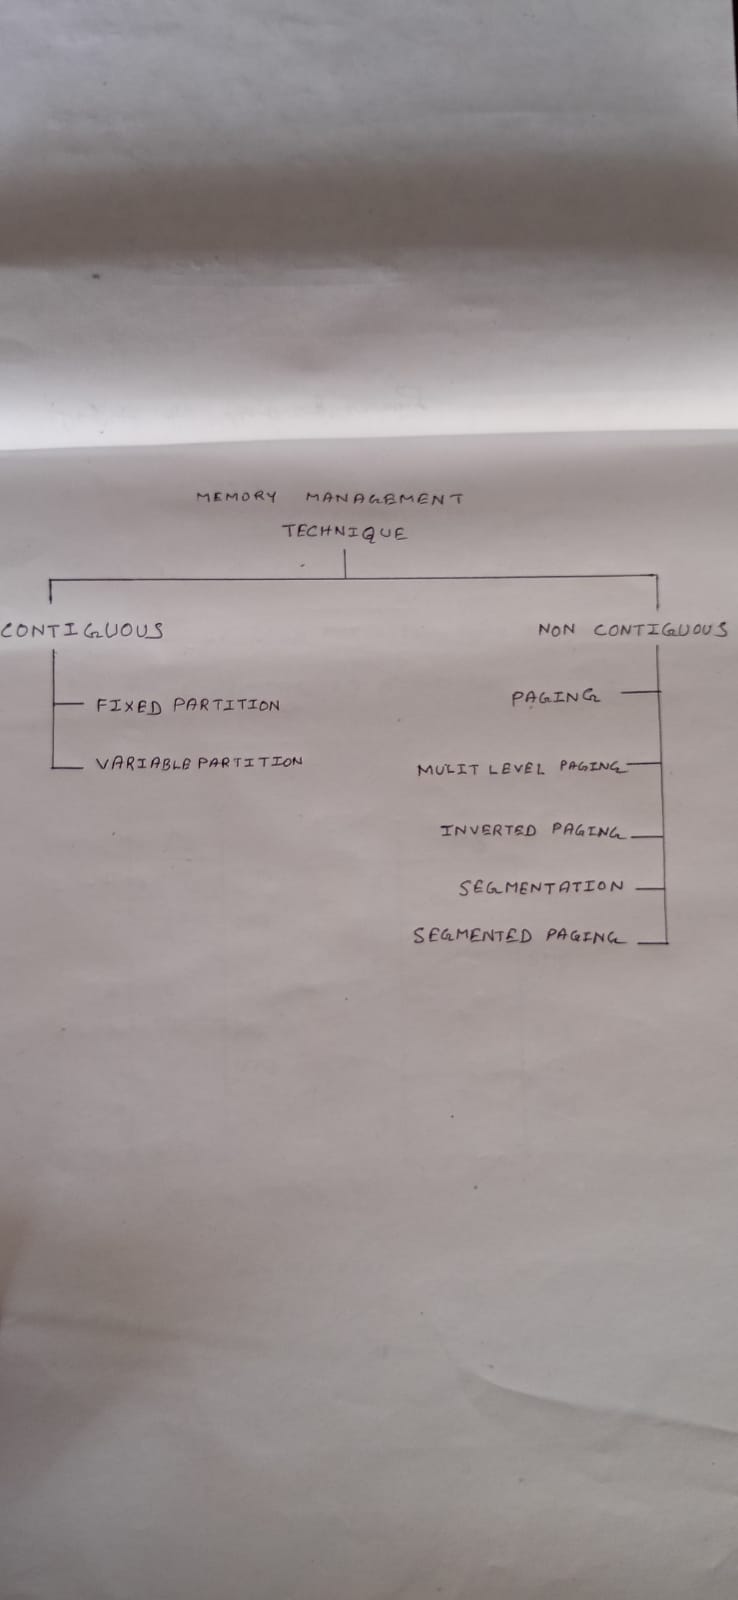 MEMORY MANAGEMENT
TECHNIQUE
CONTIGUOUS
FIXED PARTITION
VARIABLE PARTITION
NON CONTIGUOUS
PAGING
MULIT LEVEL PAGING
INVERTED PAGING
SEGMENTATION
SEGMENTED PAGING